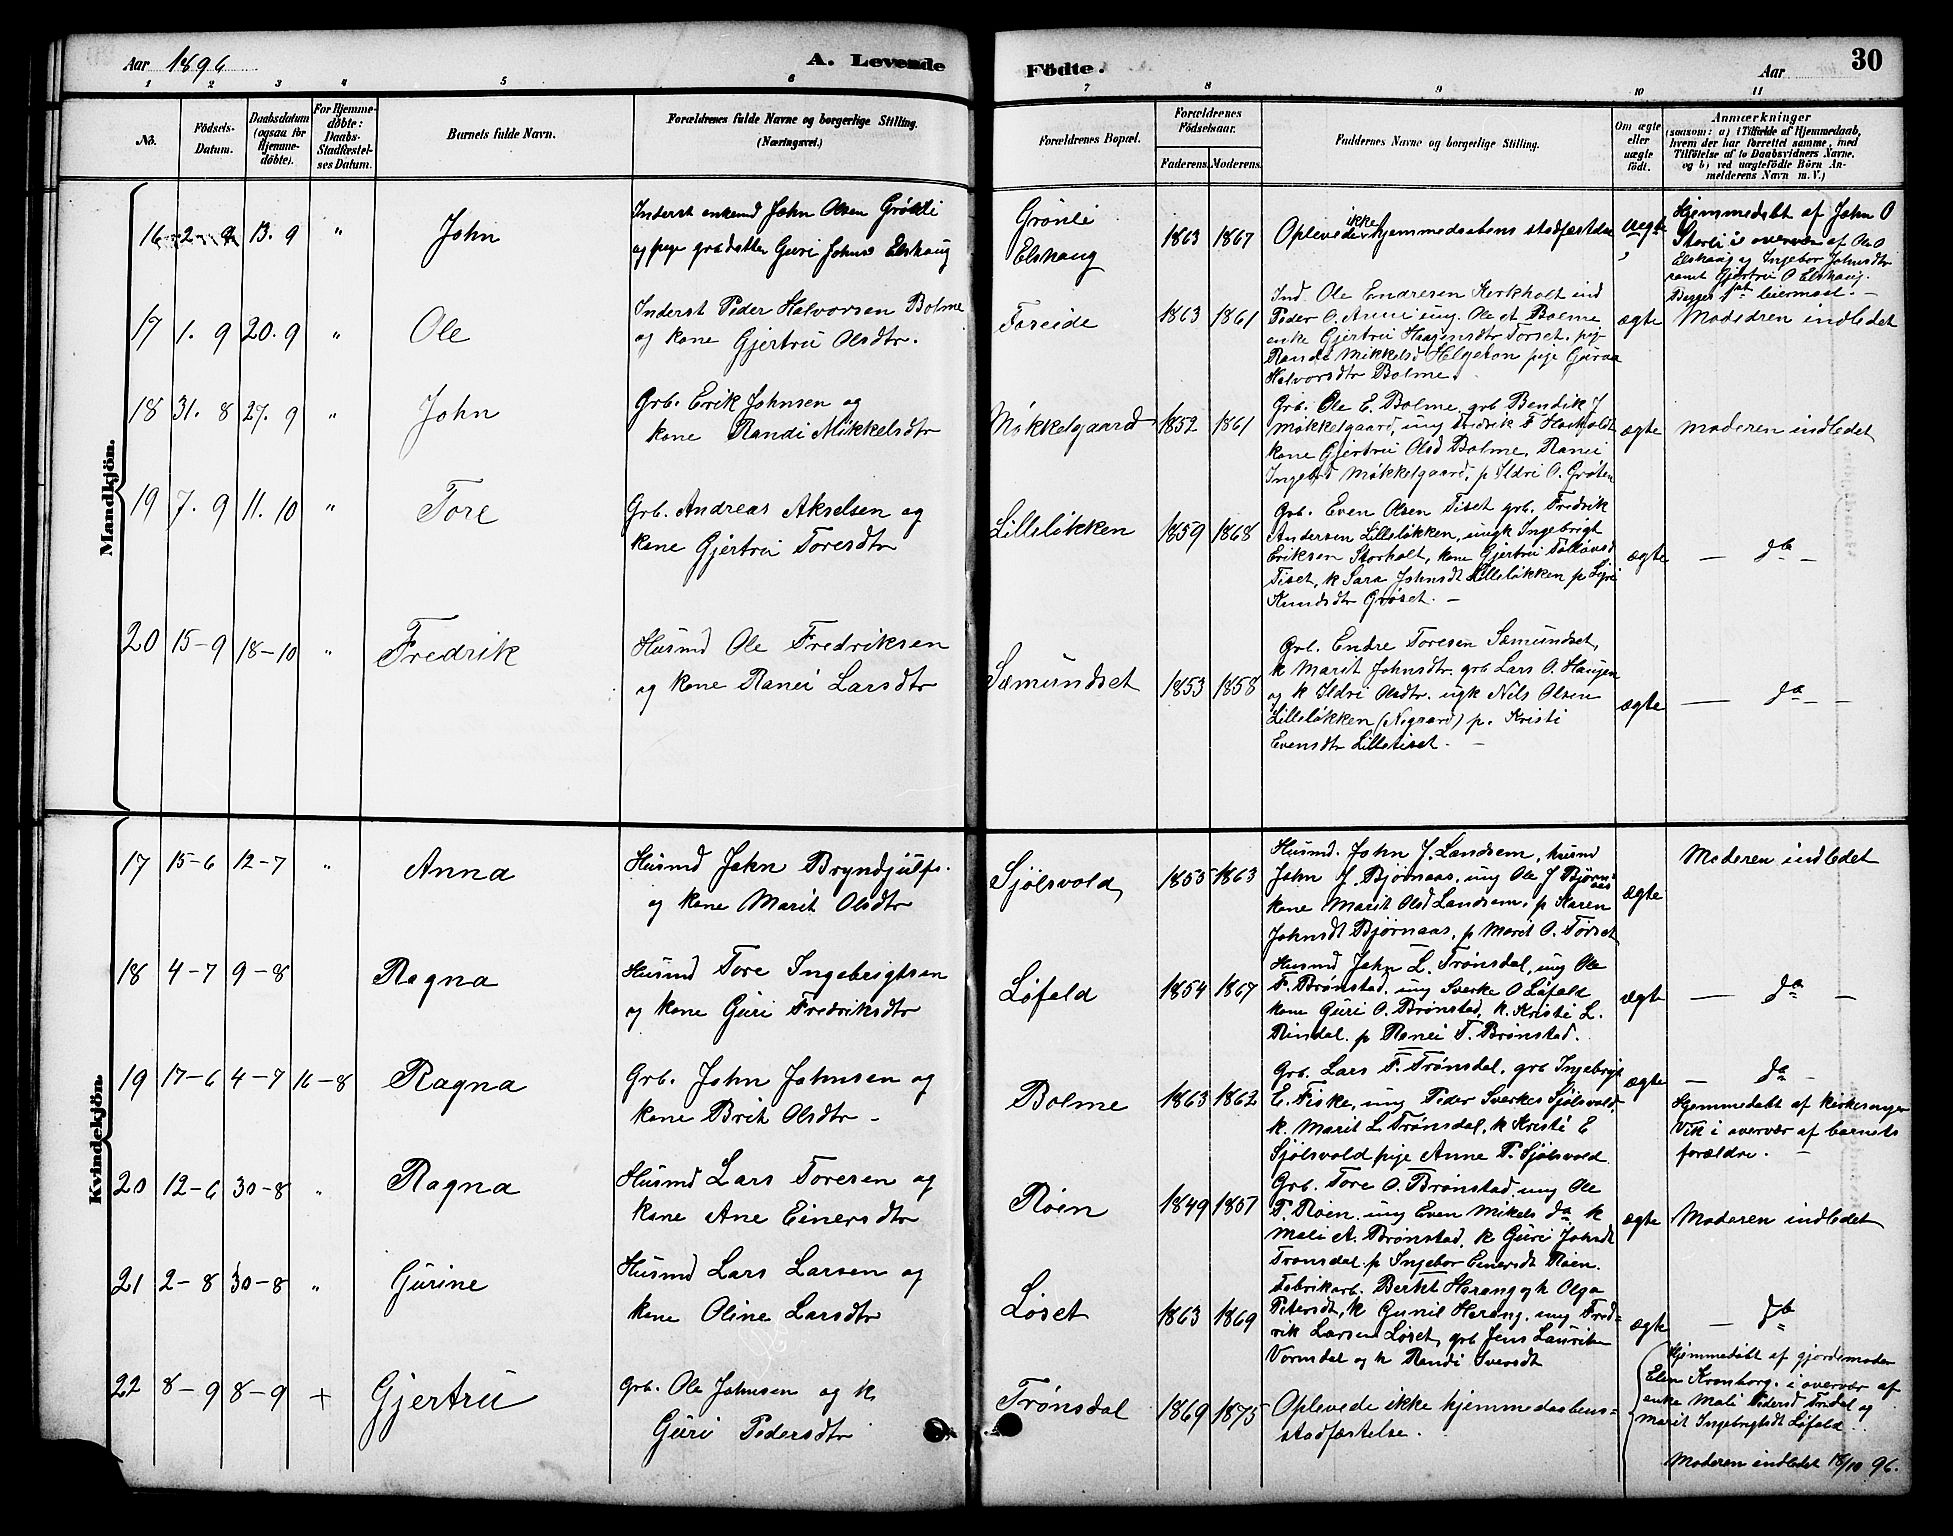 Aar 1896
A. Levende
Födte.
Aar
30
1 2 3 4 5 6 7 8 9 10 11
No.
Födsels-
Datum.
Daabsdatum
(ogsaa for
Hjemme-
døbte).
For Hjemme-
døbte:
Daabs-
Stadfæstel-
ses Datum.
Barnets fulde Navn.
Forældrenes fulde Navne og borgerlige Stilling.
(Næringsvei.)
Forældrenes Bopæl.
Forældrenes
Födselsaar.
Faderens. Moderens.
Faddernes Navne og borgerlige Stilling.
Om ægte
eller
uægte
født.
Anmærkninger
(saasom: a) i Tilfælde af Hjemmedaab,
hvem der har forrettet samme, med
Tilføielse af to Daabsvidners Navne,
og b) ved uægtefödte Börn An-
melderens Navn m. V.)
Mandkjön.
16 2-9 13. 9 " John
Inderst enkemd John Olsen Grönli
og pige grbdatter Guri Johns Elshaug
Grönli
Elshaug
1863 1867
Oplevede ikke hjemmedaabens stadfæstelse
uegte
Hjemmedøbt af John O
Storli i overvær af Ole O
Elshaug og Ingebor Johnsdtr
samt Gjertru O Elshaug.
Begges 1st leiermaal. —
17 1. 9 20. 9 " Ole
Inderst Peder Halvorsen Bolme
og kone Gjertru Olsdtr.
Foseide
1863 1861
Ind. Ole Endresen Kirkholt ind
Peder O. Aune ung. Ole A Bolme
enke Gjertru Haagensdtr Torset, pig
Randi Mikkelsd Helgeton pige Guraa
Halvorsdtr Bolme.
ægte
Moderen indledet
18 31. 8 27. 9 " John
Grb. Erik Johnsen og
kone Randi Mikkelsdtr
Møkkelgaard
1852 1861
Grb. Ole E. Bolme, grb Bendik J
Møkkelgaard, ung Fredrik F
kone Gjertru Olsd Bolme, Ranei
Møkkelgaard, p Ildri O. Grøten
ægte
Moderen indledet
19 7. 9 11. 10 " Tore
Grb. Andreas Akselsen og
kone Gjertru Toresdtr
Lilleløkken
1859 1868
Grb. Even Olsen Tiset grb. Fredrik
Andersen Lilleløkken, ungk Ingebrigt
Eriksen Storholt, kone Gjertru
Tiset, k Sara Johnsdt Lilleløkken p
Knudsdtr Grøset. —
ægte
— do —
20 15-9 18-10 " Fredrik
Husmd Ole Fredriksen
og kone Ranei Larsdtr
Sæmundset
1853 1858
Grb. Endre Toresen Sæmundset,
k Marit Johnsdtr. grb Lars O. Haugen
og k Ildri Olsdtr. ugk Nils Olsen
Lilleløkken (Nygaard) p. Kristi
Evensdtr Lilletiset. —
ægte
— do —
Kvindekjön.
17 15-6 12-7 " Anna
Husmd John Bryndjulfs.
og kone Marit Olsdtr
Sjølsvold
1855 1863
Husmd. John J. Landsem, husmd
John J. Bjørnaas, ung Ole J Bjørn-
aas
kone Marit Olsd Landsem, p Karen
Johnsdt Bjørnaas, p Marit O. Torset
ægte
Moderen indledet
18 4-7 9-8 Ragna
Husmd Tore Ingebrigtsen
og kone Guri Fredriksdtr
Løfald
1854 1867
Husmd John L. Trønsdal, ung Ole
F. Brønstad, ung Sverke O Løfald
kone Guri O. Brønstad, k. Kristi L.
Rindal. p Ranei F. Brønstad.
ægte
— do —
19 17-6 4-7 16-8 Ragna
Grb. John Johnsen og
kone Brit Olsdtr —
Bolme
1863 1862
Grb. Lars F. Trønsdal, grb Ingebrigt
E. Fiske, ung Peder Sverkes Sjølsvold,
k. Marit L Trønsdal, k Kristi E
Sjølsvold pige Anne P. Sjølsvold
ægte
— do —
Hjemmedøbt af kirkesanger
Vik i overvær af barnets
forældre. —
20 12-6 30-8 " Ragna
Husmd Lars Toresen og
kone Ane Einersdtr
Røen
1849 1857
Grb. Tore O. Brønstad, ung Ole
T. Røen, ung Even Mikels do k
Mali A. Brønstad, k Guri Johsdt
Trønsdal p Ingebor Einersdt Røen.
ægte
Moderen indledet
21 2-8 30-8 " Gurine
Husmd Lars Larsen og
kone Oline Larsdtr
Løset
1863 1869
Fabrikarb. Berket Harang og k Olga
Petersdt, k Gunil Harang, ung Fred-
rik Larsen Løset, grb Jens Lauritz
Vormdal og k Randi Iversdt
ægte
— do
22 8-9 8-9 + Gjertru
Grb. Ole Johnsen og k
Guri Pedersdtr
Trønsdal
1869 1875
Oplevede ikke hjemmedaabens=
stadfæstelse.
Hjemmedøbt af gjordemoder
Elen Kronborg. i overvær af
enke Mali Pedersd Trøndal og
Marit Ingebrigtsdt Løfald.
Moderen indledet 18/10 96.